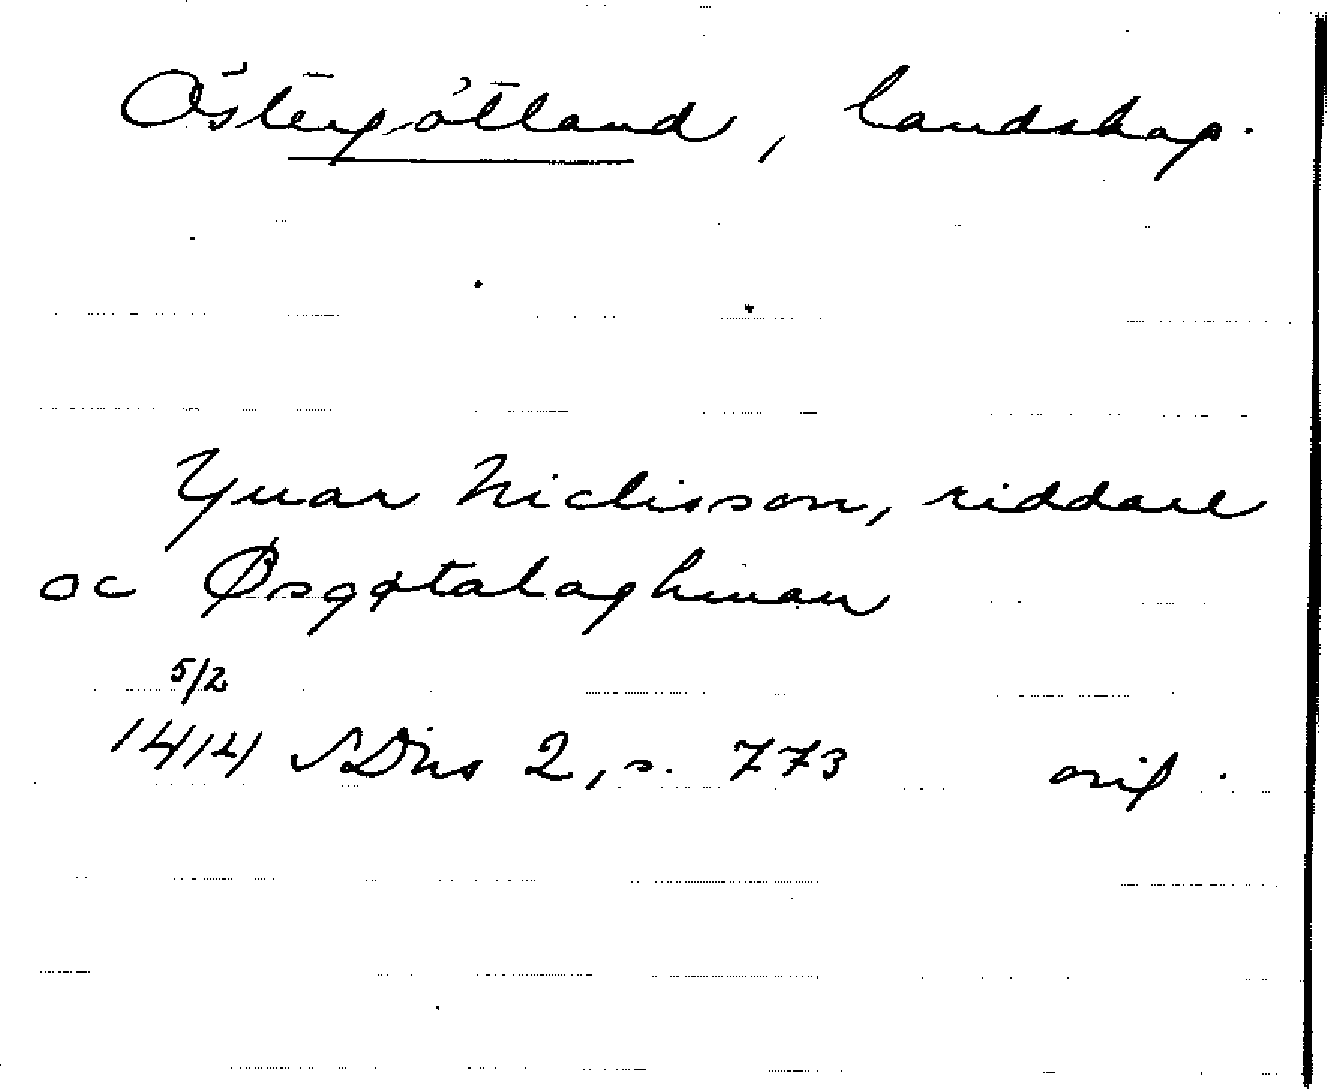 Östergötland, landskap.
Yuar Niclisson, riddare
oc Øsgøtalaghman
5/2
1414 SDns 2, s. 773 orig.